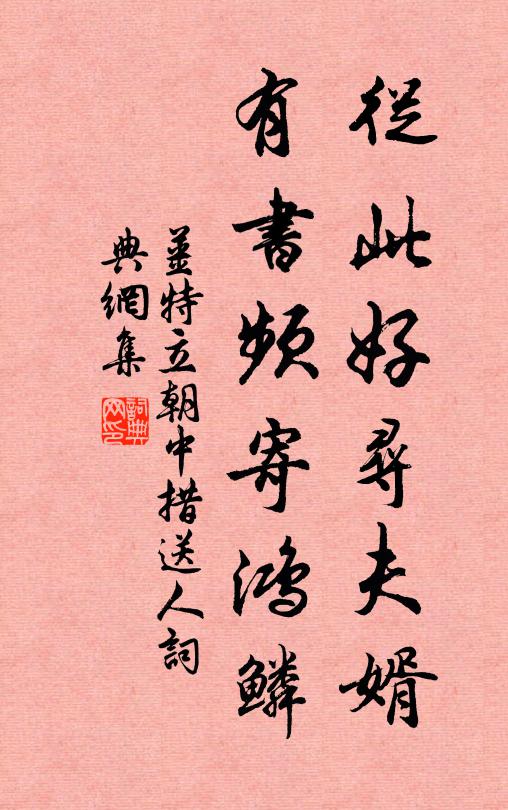 從此好尋夫婿
有書頻寄鴻鱗
薑特立朝中措送人詞
典網集
詞典網印